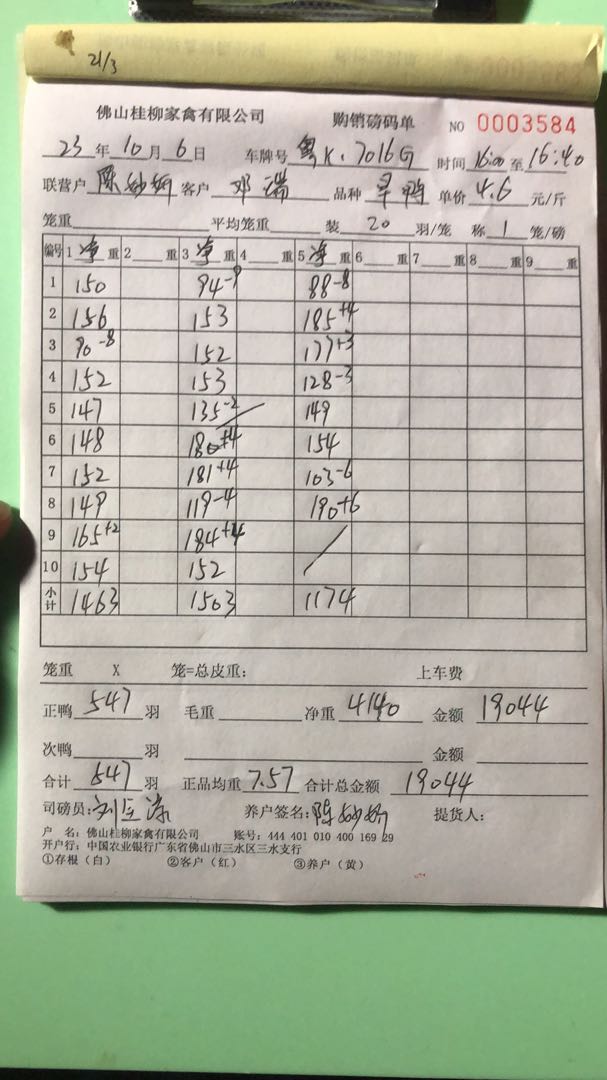 21/3
佛山桂柳家禽有限公司 购销磅码单 NO 0003584
23年10月6日 车牌号 粤K·7016G 时间16:00至16:40
联营户 客户 邓瑞 品种 旱鸭 单价4.6元/斤
笼重 平均笼重 装20羽/笼 称1笼/磅
编号 1净重 2重 3净重 4重 5净重 6重 7重 8重 9重
1 150 94-9 88-8
2 156 153 185+4
3 90-8 152 177+3
4 152 153 128-3
5 147 135-2 149
6 148 180+4 154
7 152 181+4 103-6
8 149 119-4 190+6
9 165+2 184+4
10 154 152
小计 1463 1503 1174
笼重 X 笼=总皮重: 上车费
正鸭547羽 毛重 净重4140 金额19044
次鸭 羽 金额
合计547羽 正品均重7.57 合计总金额19044
司磅员: 养户签名: 提货人:
户 名: 佛山桂柳家禽有限公司 账号: 444 401 010 400 169 29
开户行: 中国农业银行广东省佛山市三水区三水支行
①存根(白) ②客户(红) ③养户(黄)